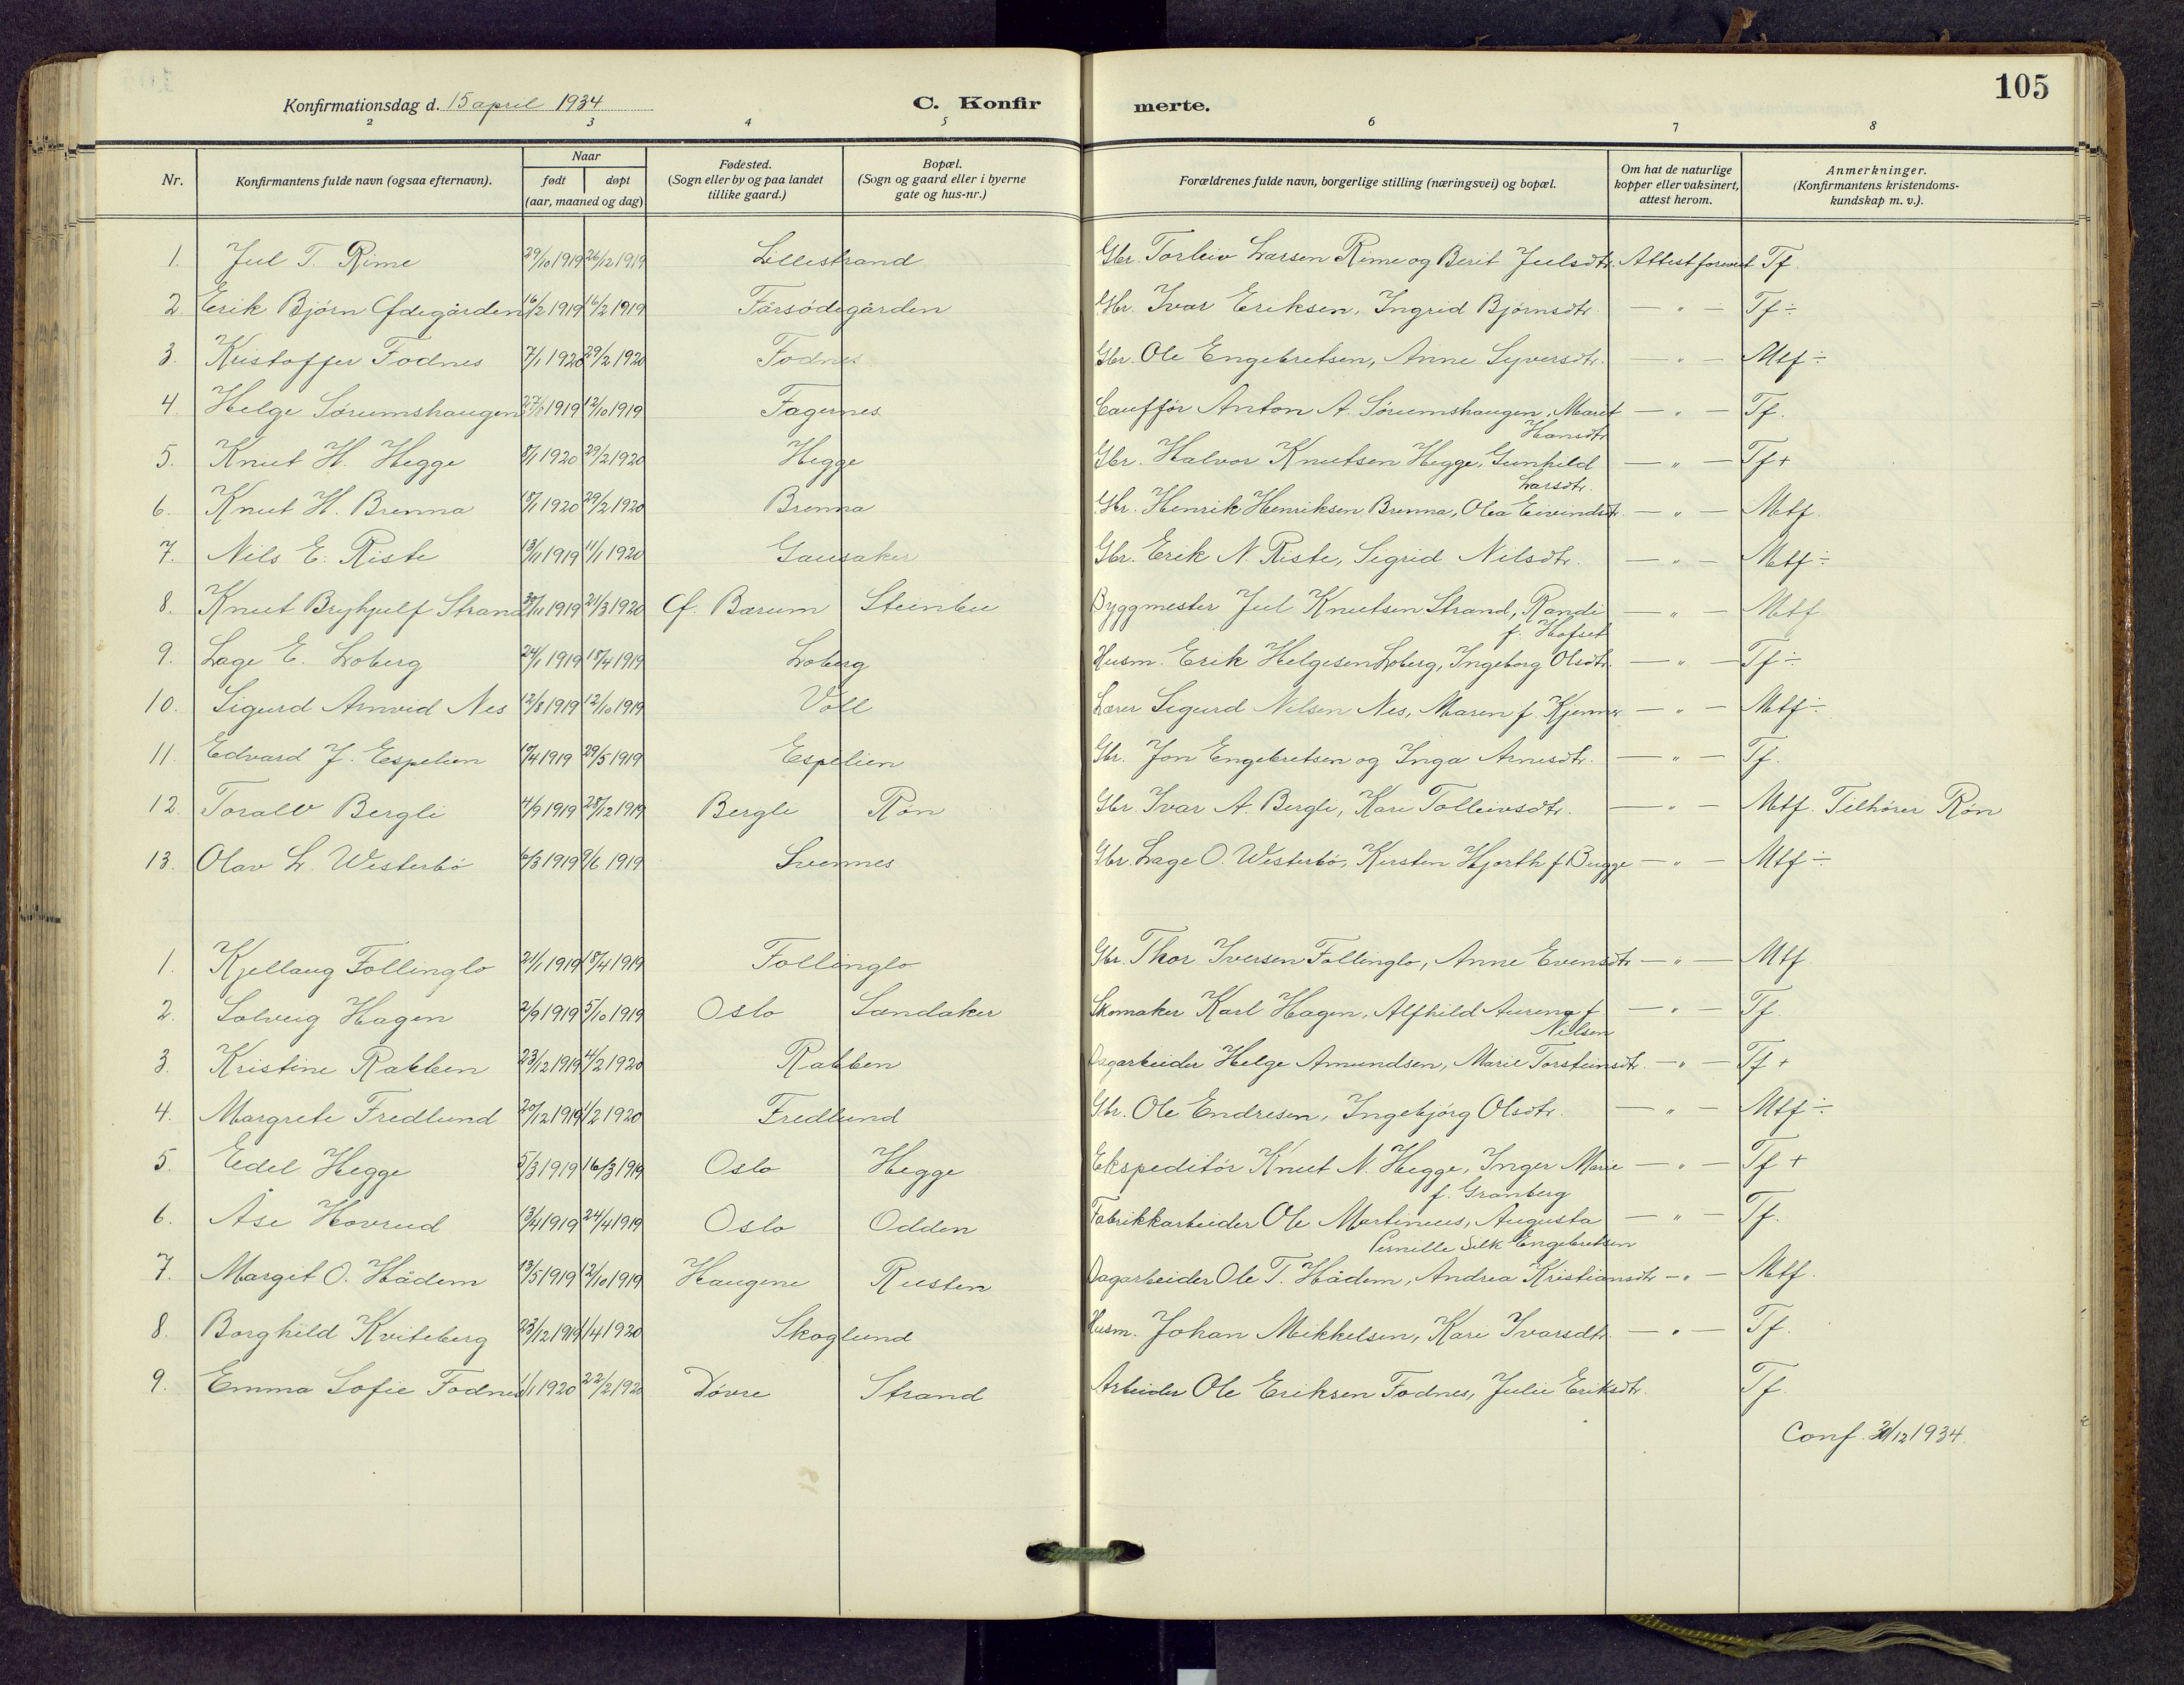 105
Konfirmationsdag d. 15 april 1934 C. Konfirmerte.
2 3 4 5 6 7 8
Nr. Konfirmantens fulde navn (ogsaa efternavn). Naar født døpt (aar, maaned og dag) Fødested. (Sogn eller by og paa landet tillike gaard.) Bopæl. (Sogn og gaard eller i byerne gate og hus-nr.) Forældrenes fulde navn, borgerlige stilling (næringsvei) og bopæl. Om hat de naturlige kopper eller vaksinert, attest herom. Anmerkninger. (Konfirmantens kristendomskundskap m. v.).
1. Jul T. Rime 29/10 1919 26/12 1919 Lillestrand Gbr. Torleiv Larsen Rime og Berit Julsdtr. Attest forevist Tf.
2. Erik Bjørn Ødegården 16/2 1919 16/2 1919 Fårsødegården Gbr. Ivar Eriksen, Ingrid Bjørnsdtr. — " — Tf ÷
3. Kristoffer Fodnes 7/1 1920 29/2 1920 Fodnes Gbr. Ole Engebretsen, Anne Syversdtr. — " — Mtf ÷
4. Helge Sørumshaugen 27/8 1919 12/10 1919 Fagernes Cauffør Anton A. Sørumshaugen, Marit Hansdtr — " — Tf.
5. Knut H. Hegge 8/1 1920 29/2 1920 Hegge Gbr. Halvor Knutsen Hegge, Gunhild Larsdtr. — " — Tf +
6. Knut H. Brenna 18/1 1920 29/2 1920 Brenna Gbr. Henrik Henriksen Brenna, Olea Eivindsdtr. — " — Mtf.
7. Nils E. Riste 13/11 1919 11/1 1920 Gausaker Gbr. Erik N. Riste, Sigrid Nilsdtr. — " — Mtf ÷
8. Knut Brynjulf Strand 30/11 1919 21/3 1920 Ø. Bærum Steinbu Byggmester Jul Knutsen Strand, Randi f. Hofset — " — Mtf
9. Lage E. Loberg 24/1 1919 18/4 1919 Loberg Husm. Erik Helgesen Loberg, Ingeborg Olsdtr. — " — Tf ÷
10. Sigurd Arnvid Nes 12/8 1919 12/10 1919 Voll Lærer Sigurd Nilsen Nes, Maren f. Kjenner — " — Mtf ÷
11. Edvard J. Espelien 10/4 1919 29/5 1919 Espelien Gbr. Jon Engebretsen og Inga Arnesdtr. — " — Tf.
12. Toralv Bergli 4/9 1919 28/12 1919 Bergli Røn Gbr. Ivar A. Bergli, Kari Tolleivsdtr. — " — Mtf. Tilhører Røn
13. Olav L. Westerbø 6/3 1919 9/6 1919 Svennes Gbr. Lage O. Westerbø, Kirsten Hjorth f. Bugge — " — Mtf ÷
1. Kjellaug Follinglo 21/1 1919 18/4 1919 Follinglo Gbr. Thor Iversen Follinglo, Anne Evensdtr — " — Mtf
2. Solveig Hagen 2/9 1919 5/10 1919 Oslo Sandaker Skomaker Karl Hagen, Alfhild f Nilsen — " — Tf.
3. Kristine Rabben 23/12 1919 4/2 1920 Rabben Dagarbeider Helge Amundsen, Marie Torsteinsdtr. — " — Tf +
4. Margrete Fredlund 20/12 1919 1/2 1920 Fredlund Gbr. Ole Endresen, Ingebjørg Olsdtr. — " — Mtf ÷
5. Edel Hegge 5/3 1919 16/3 1919 Oslo Hegge Ekspeditør Knut N. Hegge, Inger Marie f. Granberg — " — Tf +
6. Åse Hovrud 13/4 1919 24/4 1919 Oslo Odden Fabrikkarbeider Ole Martinius, Augusta Pernille Silk Engebretsen — " — Tf.
7. Margit O. Hådem 13/5 1919 12/10 1919 Haugene Rusten Dagarbeider Ole T. Hådem, Andrea Kristiansdtr — " — Mtf.
8. Borghild Kviteberg 23/12 1919 1/4 1920 Skoglund Husm. Johan Mikkelsen, Kari Ivarsdtr. — " — Tf.
9. Emma Sofie Fodnes 1/1 1920 22/2 1920 Dovre Strand Arbeider Ole Eriksen Fodnes, Julie Eriksdtr. Tf.
Conf. 31/12 1934.